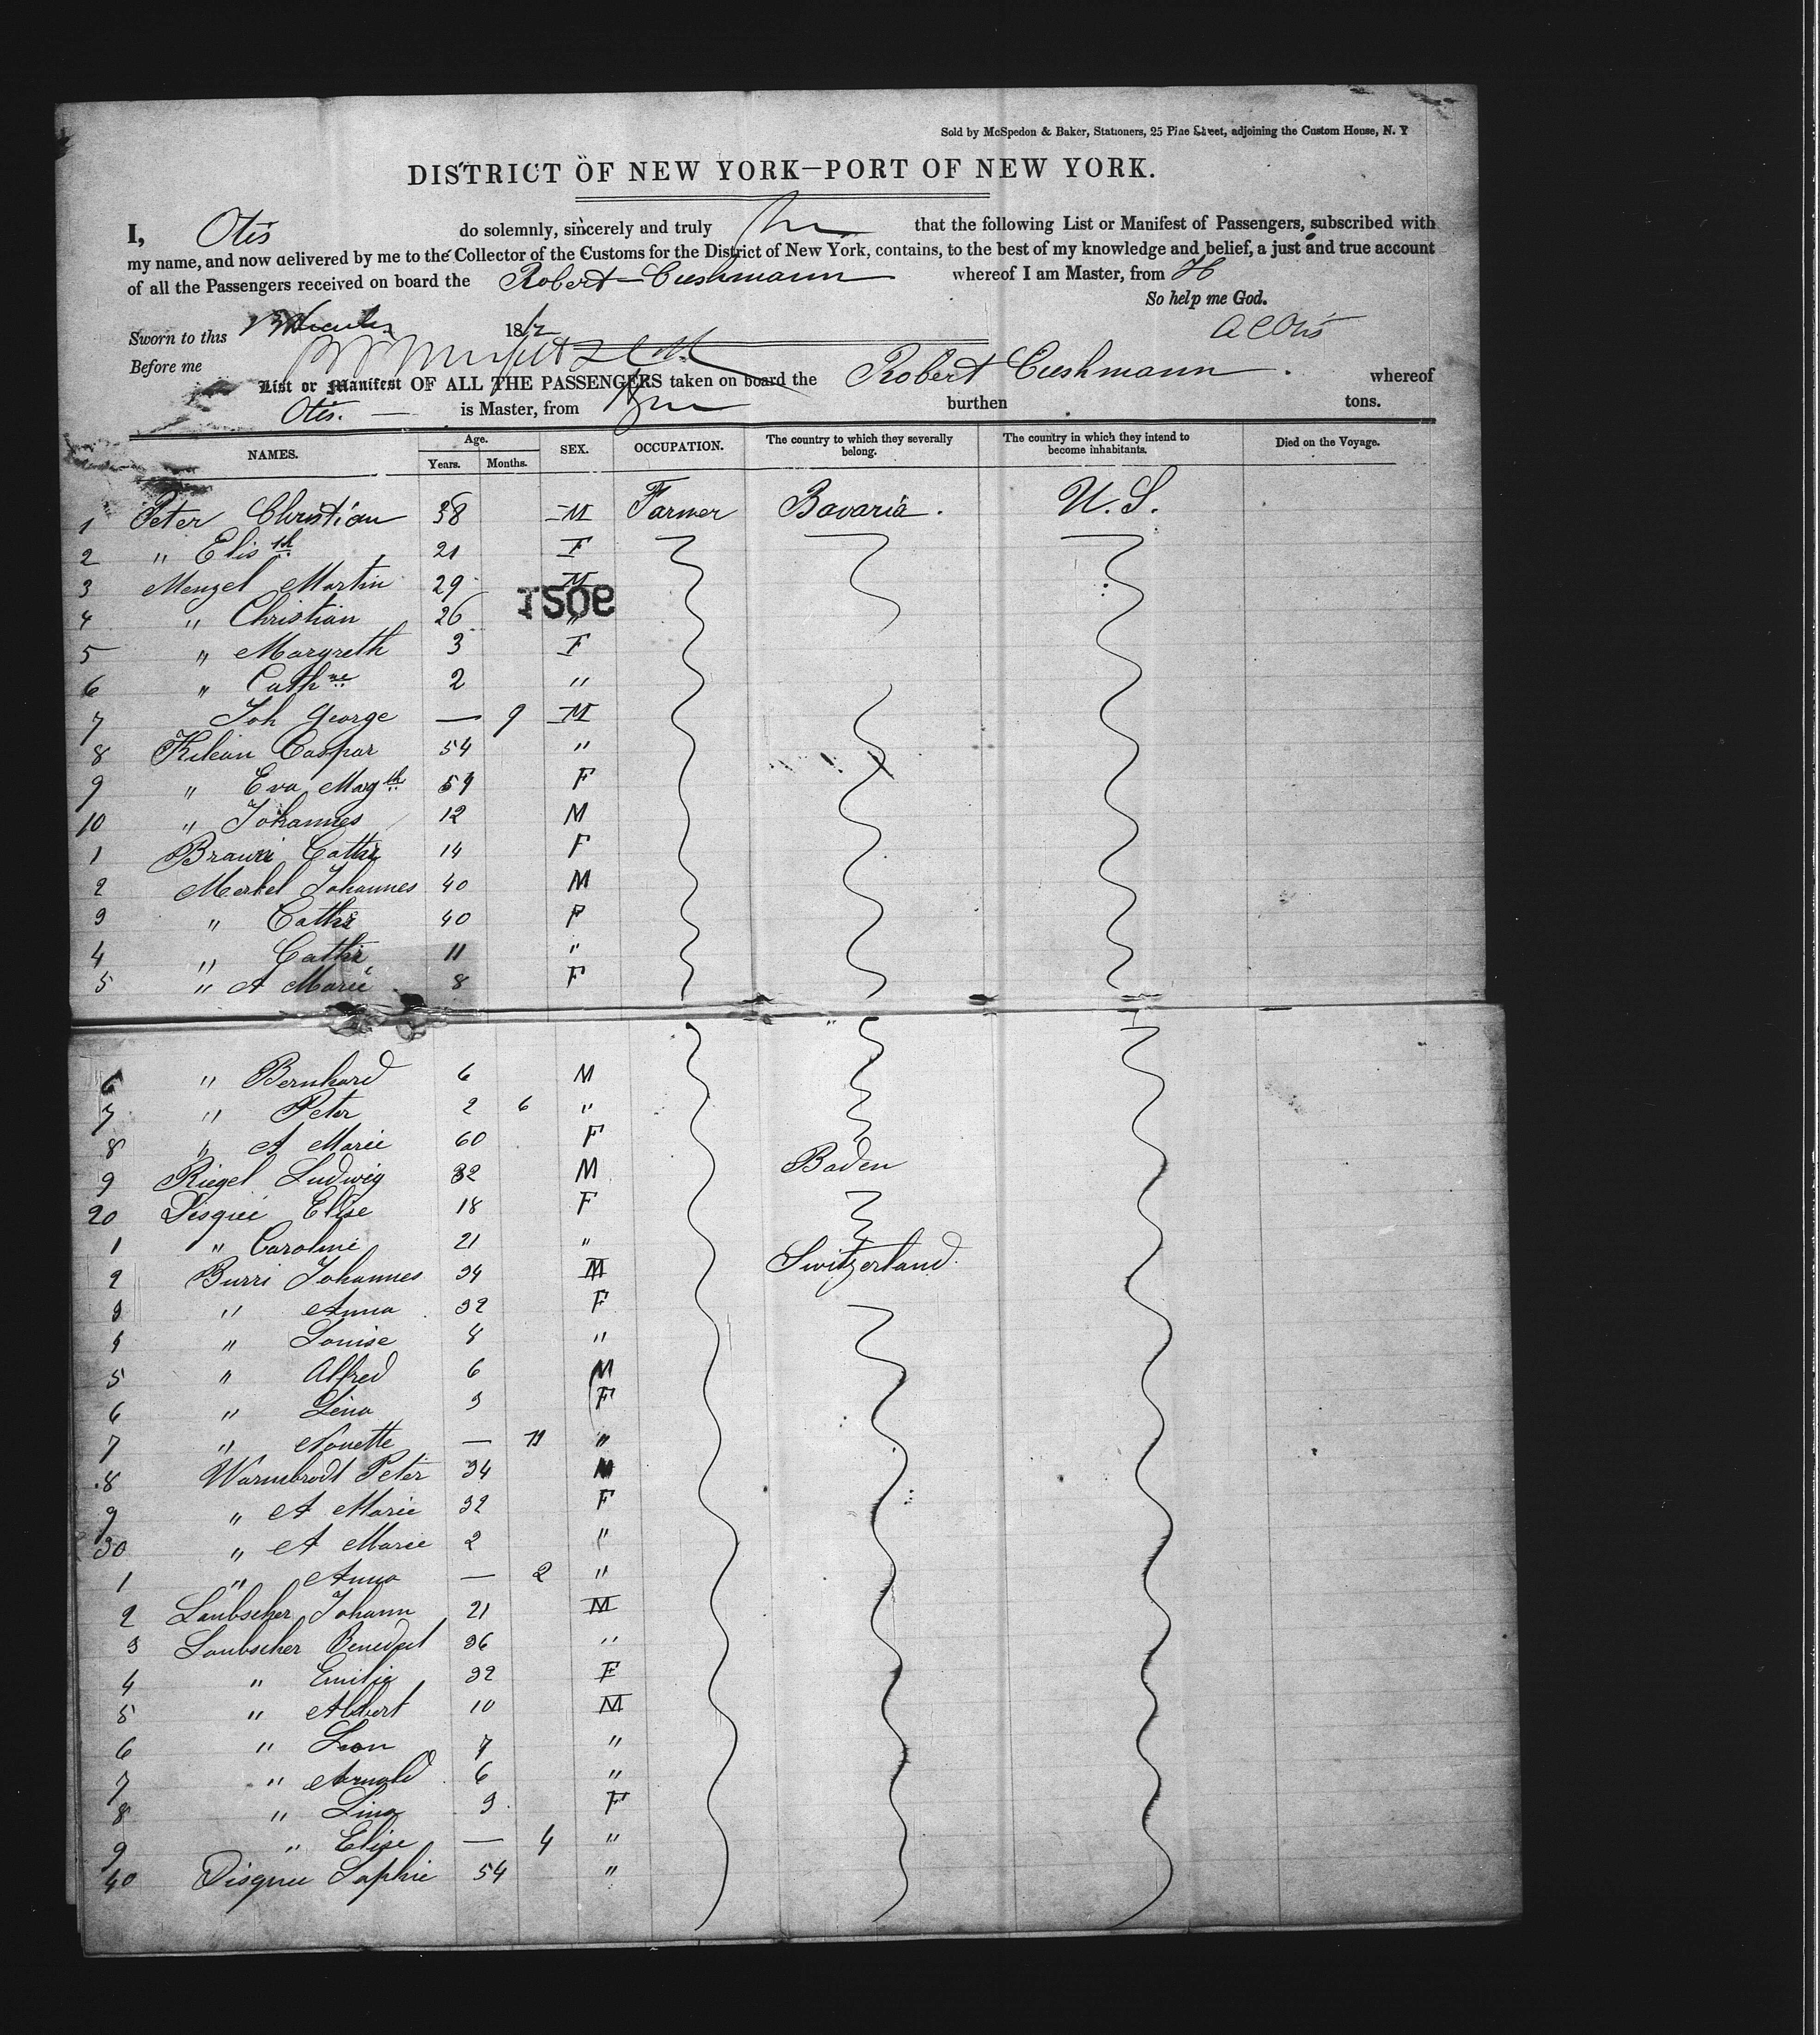 Sold by McSpedon & Baker, Stationers, 25 Pine Street, adjoining the Custom House, N. Y
DISTRICT OF NEW YORK—PORT OF NEW YORK.
I, Otis do solemnly, sincerely and truly that the following List or Manifest of Passengers, subscribed with
my name, and now delivered by me to the Collector of the Customs for the District of New York, contains, to the best of my knowledge and belief, a just and true account
of all the Passengers received on board the Robert Cushmann whereof I am Master, from H
So help me God.
Sworn to this 1862
A C Otis
Before me
List or Manifest OF ALL THE PASSENGERS taken on board the Robert Cushmann. whereof
Otis. is Master, from burthen tons.
NAMES. Age. Years. Months. SEX. OCCUPATION. The country to which they severally belong. The country in which they intend to become inhabitants. Died on the Voyage.
1 Peter Christian 38 M Farmer Bavaria. U. S.
2 " Elis th 21 F
3 Menzel Martin 29 M
1509
4 " Christian 26 "
5 " Margreth 3 F
6 " Cath ne 2 "
7 Joh George — 9 M
8 Kilian Caspar 54 "
9 " Eva Marg th 54 F
10 " Johannes 12 M
1 Braun Cath 14 F
2 Merkel Johannes 40 M
3 " Cath 40 F
4 " Cath 11 "
5 " A Marie 8 F
6 " Bernhard 6 M
7 " Peter 2 6 "
8 " A Marie 60 F
9 Riegel Ludwig 32 M Baden
20 Disqué Elise 18 F
1 " Caroline 21 "
2 Burri Johannes 34 M Switzerland
3 " Anna 32 F
4 " Louise 8 "
5 " Alfred 6 M
6 " Lina 3 F
7 " Nanette — 11 "
8 Warmbrodt Peter 34 M
9 " A Marie 32 F
30 " A Marie 2 "
1 " Anna — 2 "
2 Laubscher Johann 21 M
3 Laubscher Benedict 36 "
4 " Emilie 32 F
5 " Albert 10 M
6 " Leon 7 "
7 " Arnold 6 "
8 " Lina 3 F
9 " Elise — 4 "
40 Disque Sophie 54 "